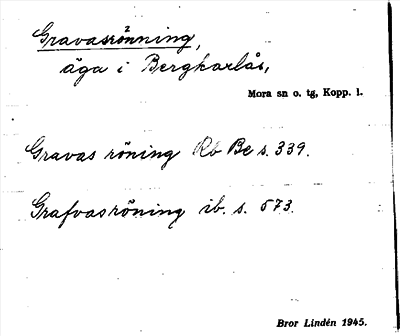 Gravasrönning,
äga i Bergkarlås,
Mora sn o. tg, Kopp. l.
Gravas röning Rb Be s. 339.
Grafvasröning ib. s. 573.
Bror Lindén 1945.